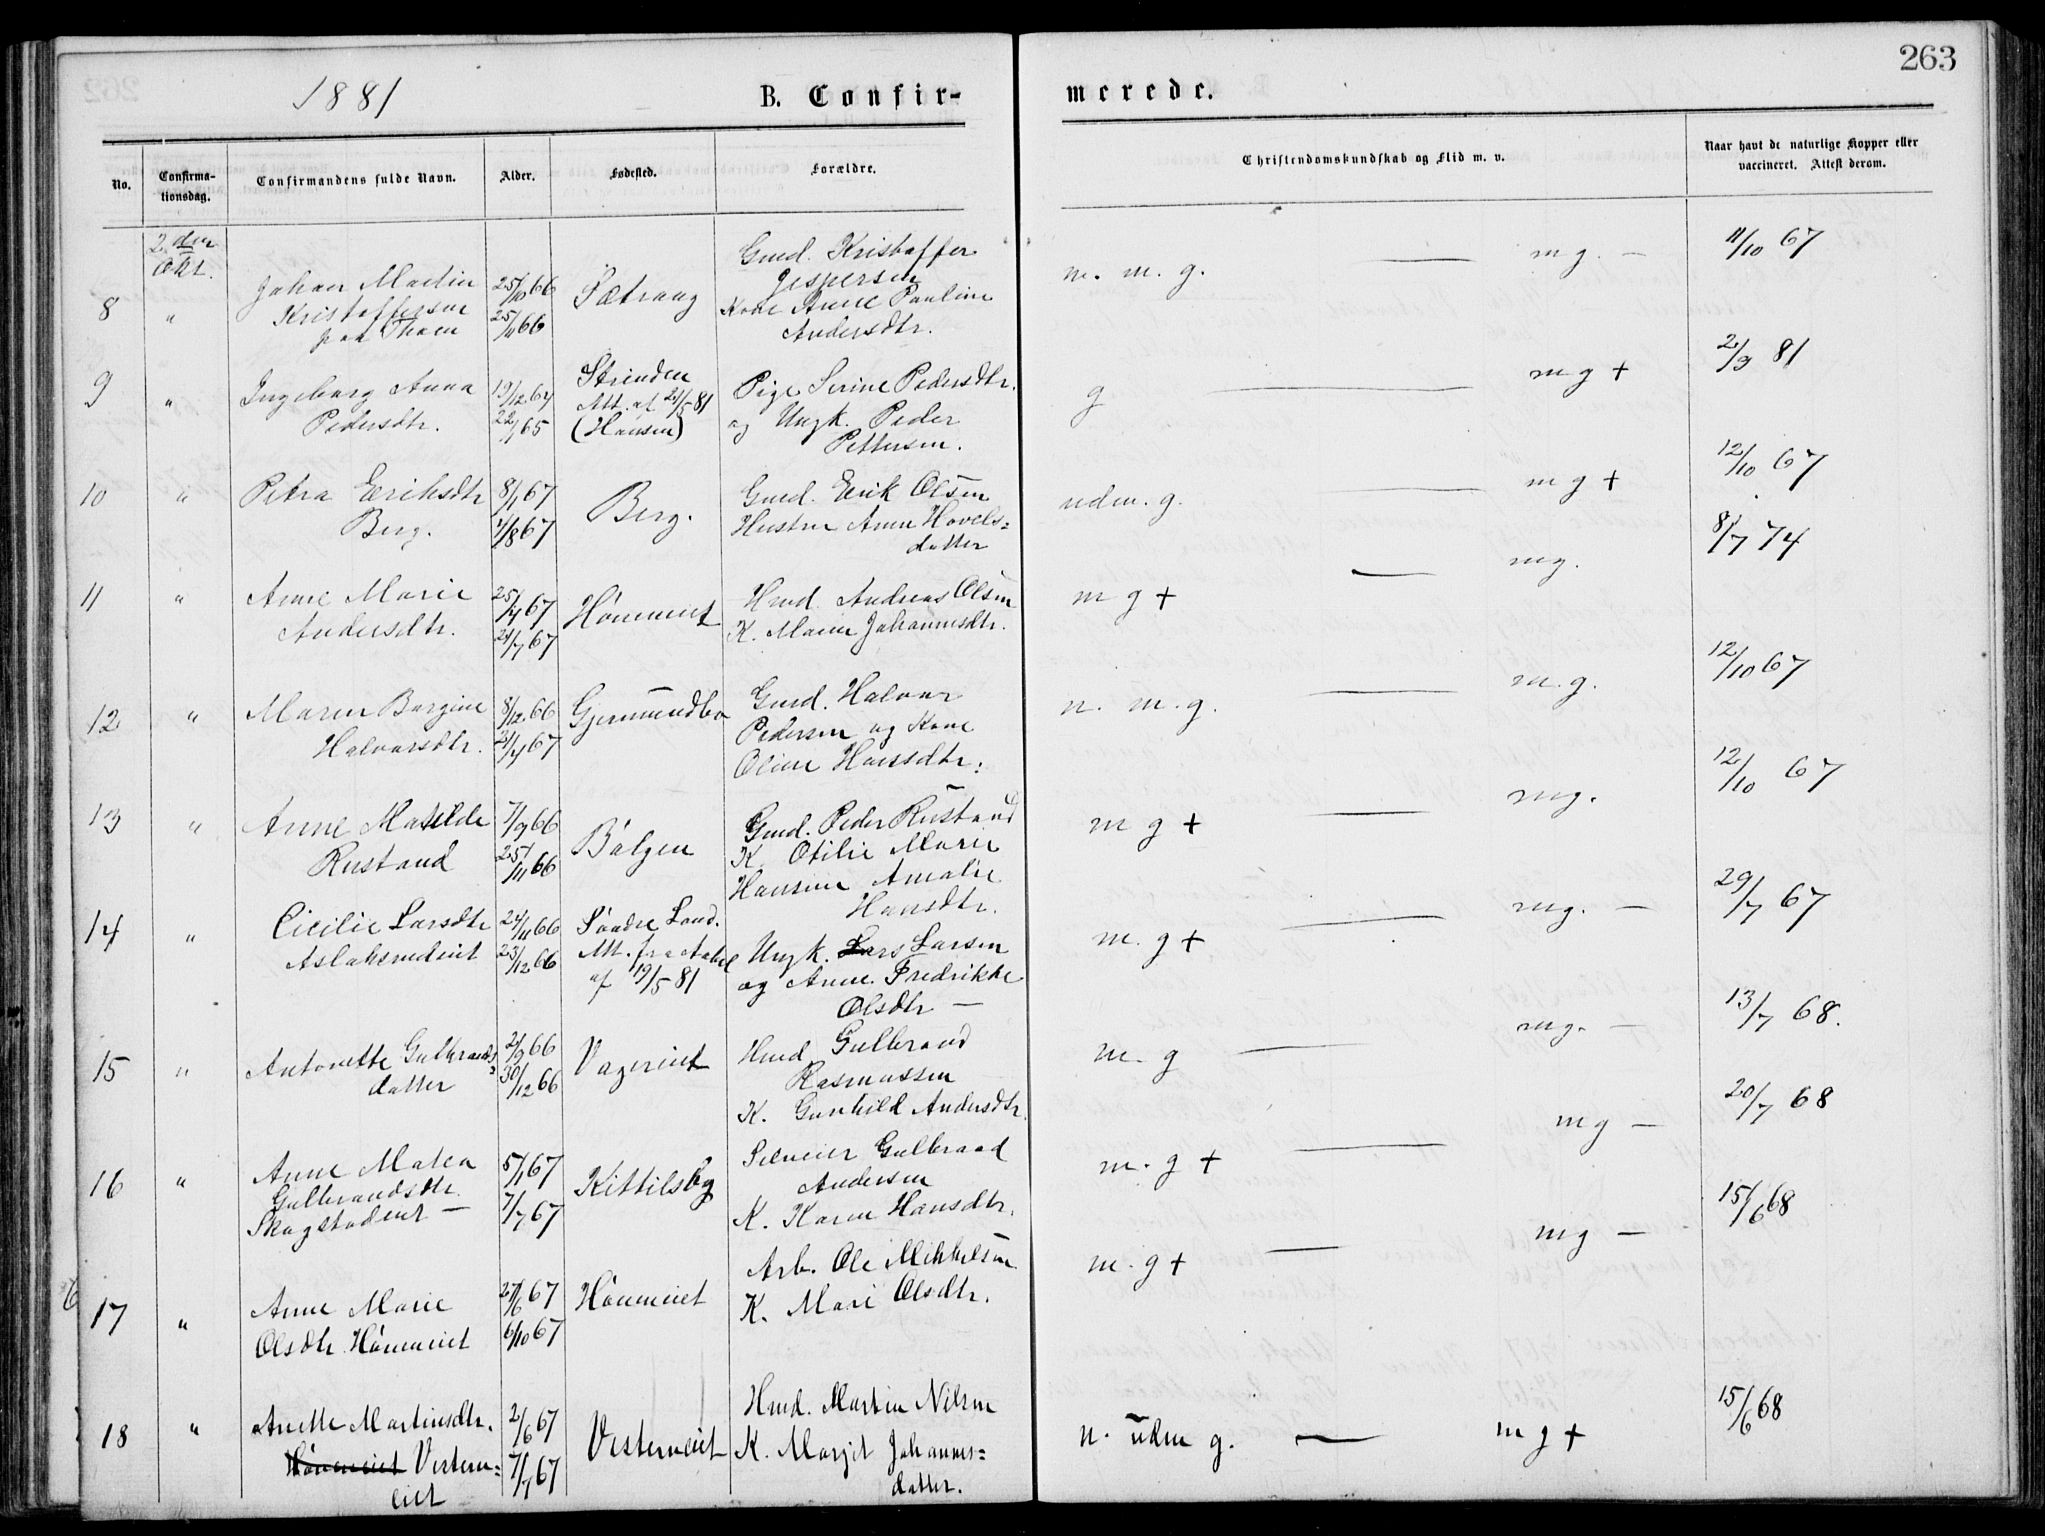 263
1881
B. Confir-
merede.
No.
Confirma-
tionsdag.
Confirmandens fulde Navn.
Alder.
Fødested.
Forældre.
Christendomskundskab og Flid m. v.
Naar havt de naturlige Kopper eller
vaccineret. Attest derom.
2den
Okt.
8 " Johan Martin
Kristoffersen
paa Thoen
25/10 66
25/11 66
Sætrang
Gmd. Kristoffer
Jespersen
Kone Anne Pauline
Andersdtr.
n. m. g. — m g. — 11/10 67
9 " Ingeborg Anna
Pedersdtr.
19/12 64
22/1 65
Strinden
Att. af 24/5 81
(Hansen)
Pige Serine Pedersdtr.
og Ungk. Peder
Pettersen.
g — m g + 2/9 81
10 " Petra Eriksdtr
Berg.
8/1 67
4/8 67
Berg.
Gmd. Erik Olsen
Hustru Anne Hovels=
datter
udm. g. — m g + 12/10 67
11 " Anne Marie
Andersdtr.
25/4 67
21/7 67
Hönneneiet
Hmd. Andreas Olsen
K. Maren Johannesdtr.
m g + — mg. 8/7 74
12 " Maren Bergine
Halvorsdtr.
8/12 66
21/4 67
Gjermundbo
Gmd. Halvor
Pedersen og Kone
Oline Hansdtr.
n. m. g. — m.g. 12/10 67
13 " Anne Matilde
Rustand
7/9 66
25/11 66
Bälgen
Gmd. Peder Rustand
K. Otilie Marie
Hansine Amalie
Hansdtr.
m g + — mg. 12/10 67
14 " Cicilie Larsdtr
Aslaksrudeiet
24/11 66
23/12 66
Söndre Land.
Att. fra
af 19/5 81
Ungk. Lars Larsen
og Anne Fredrikke
Olsdtr —
m. g + — mg. — 29/7 67
15 " Antonette Gulbrands=
datter
2/9 66
30/12 66
Vagereiet
Hmd Gulbrand
Rasmussen
K. Gunhild Andersdtr.
m. g — mg. — 13/7 68.
16 " Anne Matea
Gulbrandsdtr.
Skagstadeiet —
5/1 67
7/7 67
Kittilsbg
Selveier Gulbrand
Andersen
K. Karen Hansdtr.
m. g + — mg — 20/7 68
17 " Anne Marie
Olsdtr. Höneneiet
27/6 67
6/10 67
Höneneiet
Arb. Ole Mikkelsen
K. Mari Olsdtr.
m. g + — mg — 15/6 68
18 " Anette Martinsdtr.
Höneneiet Vestern=
eiet
2/6 67
7/7 67
Vesterneiet
Hmd. Martin Nilsen
K. Marjet Johannes=
datter.
n. udm g. — m g + 15/6 68